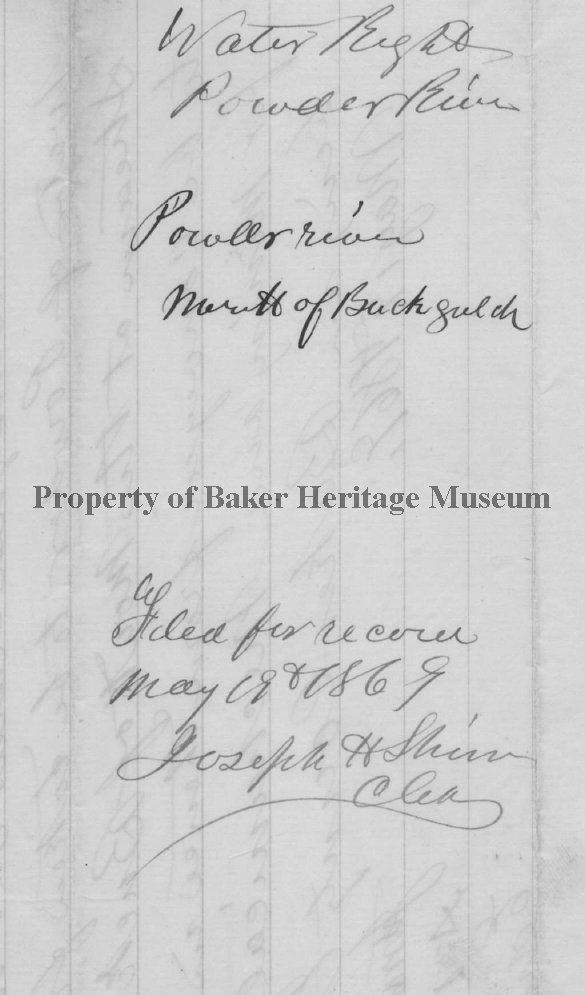 Water Right
Powder River
Powder river
Mouth of Buck gulch
Property of Baker Heritage Museum
Filed for record
May 19th 1869
Joseph H Shinn
Clerk